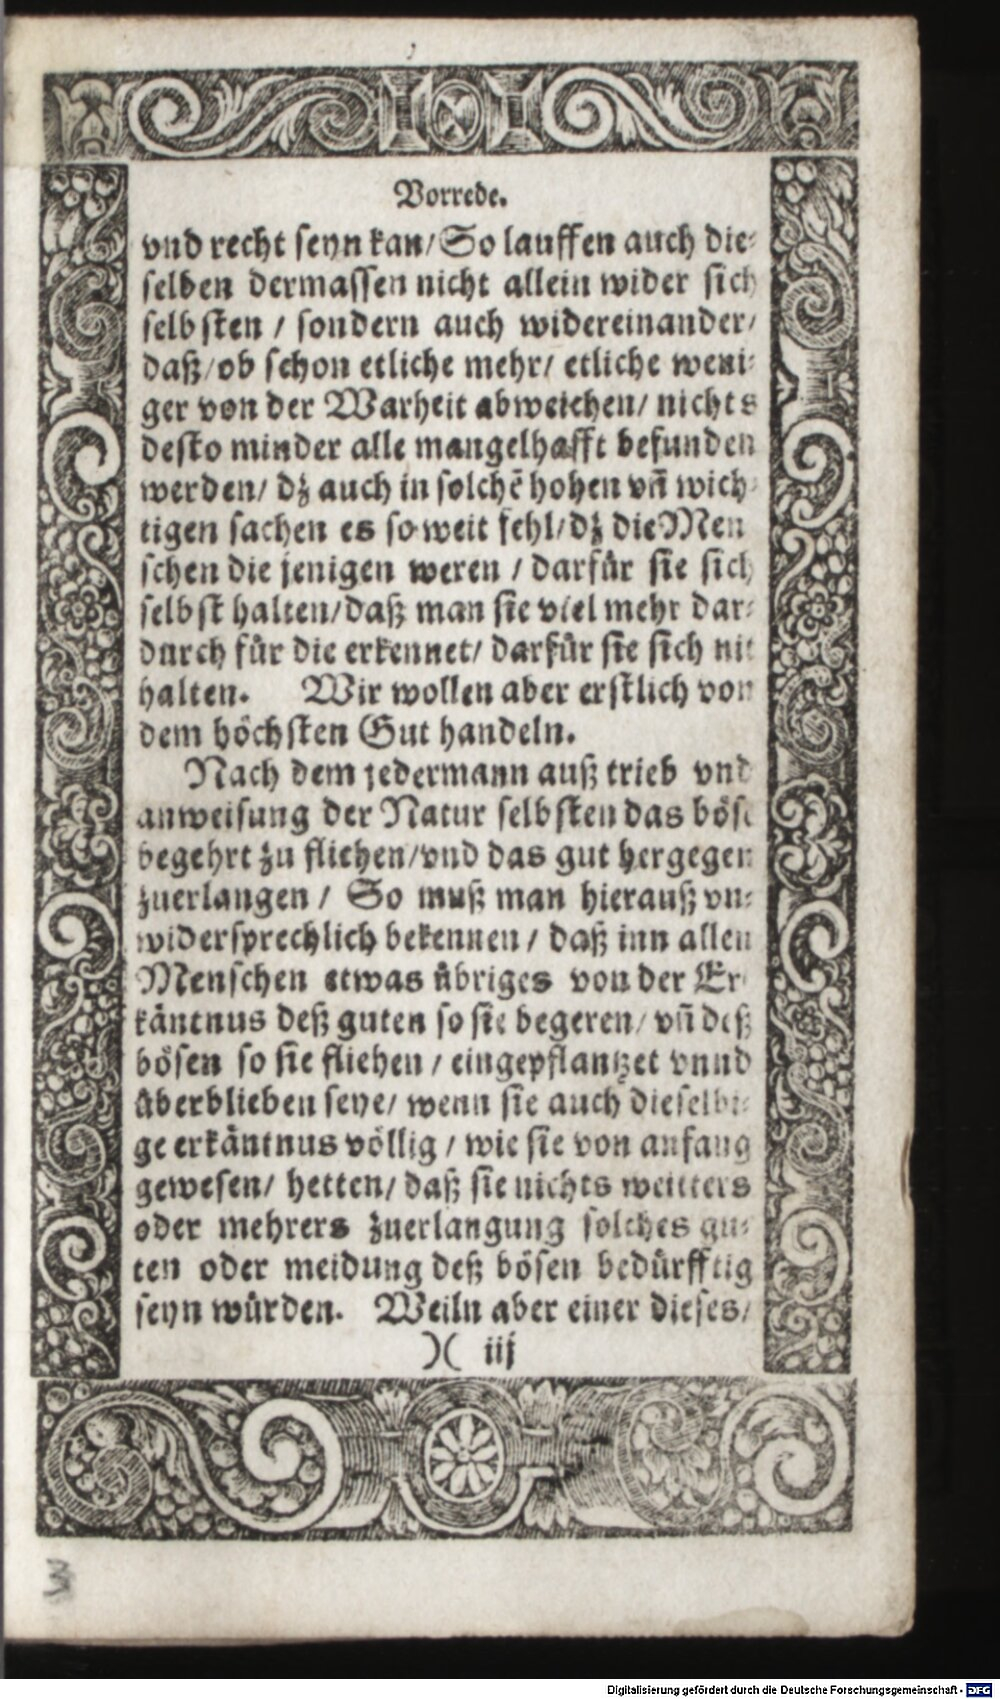 Vorrede.
vnd recht seyn kan/ So lauffen auch die⸗
selben dermassen nicht allein wider sich
selbsten / sondern auch widereinander/
daß/ ob schon etliche mehr/ etliche weni⸗
ger von der Warheit abweichen/ nichts
desto minder alle mangelhafft befunden
werden/ dz auch in solchē hohen vñ wich⸗
tigen sachen es so weit fehl/ dz die Men
schen die jenigen weren / darfür sie sich
selbst halten/ daß man sie viel mehr dar⸗
durch für die erkennet/ darfür sie sich nit
halten. Wir wollen aber erstlich von
dem höchsten Gut handeln.
Nach dem jedermann auß trieb vnd
anweisung der Natur selbsten das böse
begehrt zu fliehen/ vnd das gut hergegen
zuerlangen / So muß man hierauß vn⸗
widersprechlich bekennen / daß inn allen
Menschen etwas übriges von der Er
käntnus deß guten so sie begeren/ vñ deß
bösen so sie fliehen / eingepflantzet vnnd
überblieben seye/ wenn sie auch dieselbi⸗
ge erkäntnus völlig / wie sie von anfang
gewesen/ hetten/ daß sie nichts weitters
oder mehrers zuerlangung solches gu⸗
ten oder meidung deß bösen bedürfftig
seyn würden. Weiln aber einer dieses/
)( iij
3
Digitalisierung gefördert durch die Deutsche Forschungsgemeinschaft - DFG